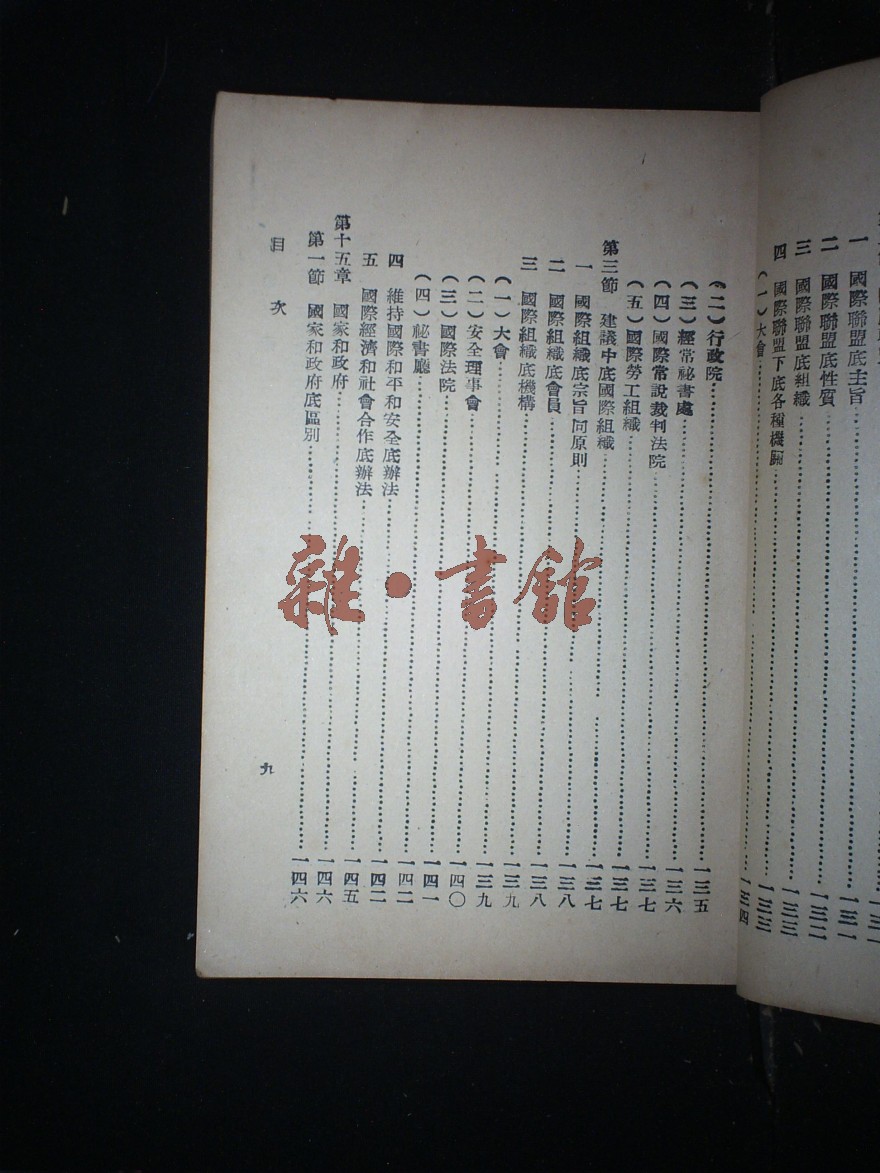 一　國際聯盟底主旨……一三一
二　國際聯盟底性質……一三二
三　國際聯盟底組織……一三三
四　國際聯盟下底各種機關……一三三
（一）大會……一三四
（二）行政院……一三五
（三）經常祕書處……一三六
（四）國際常說裁判法院……一三七
（五）國際勞工組織……一三七
第三節　建議中底國際組織……一三七
一　國際組織底宗旨同原則……一三八
二　國際組織底會員……一三八
三　國際組織底機構……一三九
（一）大會……一三九
（二）安全理事會……一四〇
（三）國際法院……一四一
（四）祕書廳……一四二
四　維持國際和平和安全底辦法……一四二
五　國際經濟和社會合作底辦法……一四五
第十五章　國家和政府……一四六
第一節　國家和政府底區別……一四六
目次
九
雜·書館